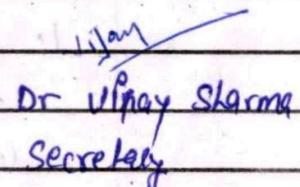 Vijay
Dr Vijay Sharma
Secretary